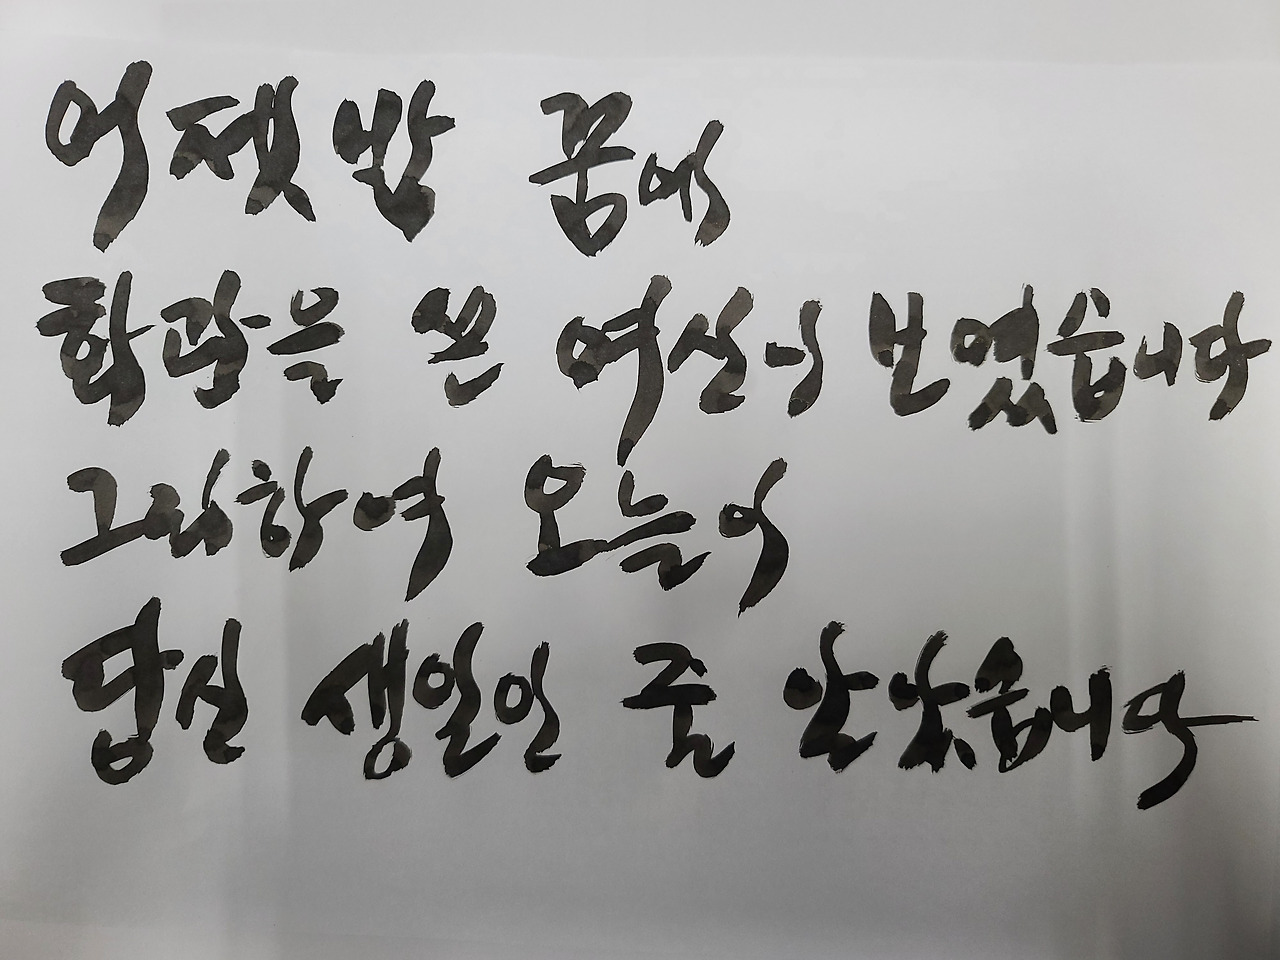 어젯밤 꿈에
화관을 쓴 여신이 보였습니다
그리하여 오늘이
당신 생일인 줄 알았습니다